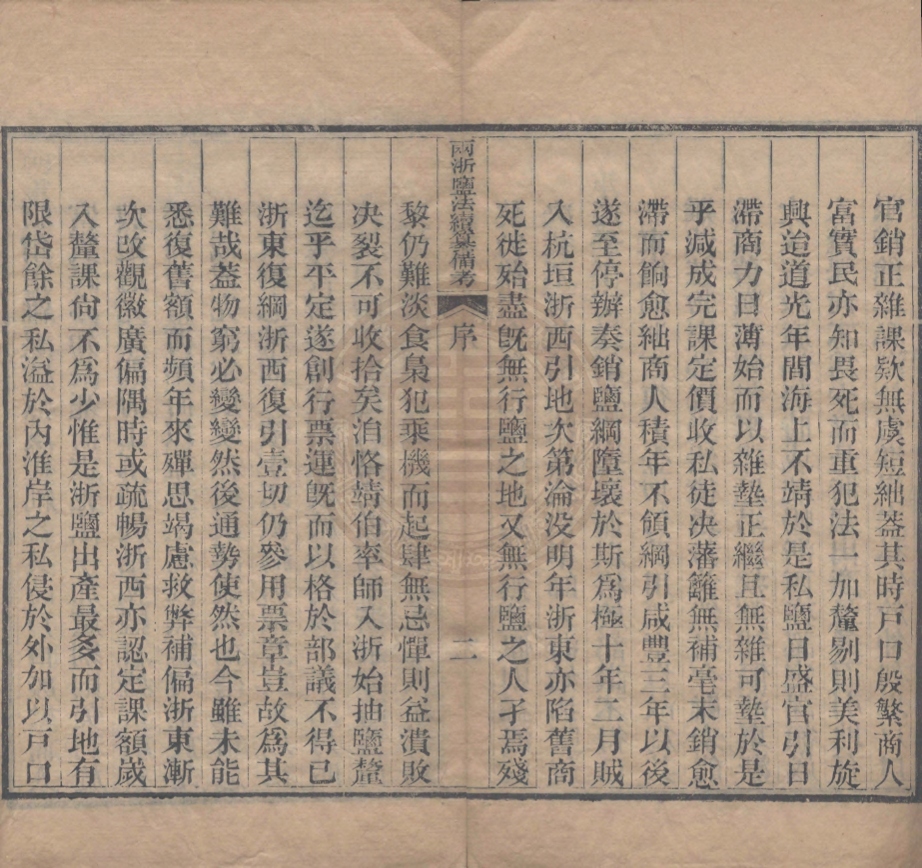 官銷正雜課欵無虞短絀葢其時戸口殷繁商人
富實民亦知畏死而重犯法一加釐剔則美利旋
興迨道光年間海上不靖於是私鹽日盛官引日
滯商力日薄始而以雜墊正繼且無雜可墊於是
乎減成完課定價收私徒決藩籬無補毫末銷愈
滯而餉愈絀商人積年不領綱引咸豐三年以後
遂至停辦奏銷鹽綱墮壞於斯爲極十年二月賊
入杭垣浙西引地次第淪没明年浙東亦陷舊商
死徙殆盡旣無行鹽之地又無行鹽之人孑焉殘
兩浙鹽法續纂備考 序 二
黎仍難淡食梟犯乘機而起肆無忌憚則益潰敗
決裂不可收拾矣洎恪靖伯率師入浙始抽鹽釐
迄乎平定遂創行票運旣而以格於部議不得已
浙東復綱浙西復引壹切仍參用票章豈故爲其
難哉葢物窮必變變然後通勢使然也今雖未能
悉復舊額而頻年來殫思竭慮救弊補偏浙東漸
次改觀徽廣偏隅時或疏暢浙西亦認定課額嵗
入釐課尙不爲少惟是浙鹽出產最多而引地有
限岱餘之私溢於內淮岸之私侵於外加以戸口